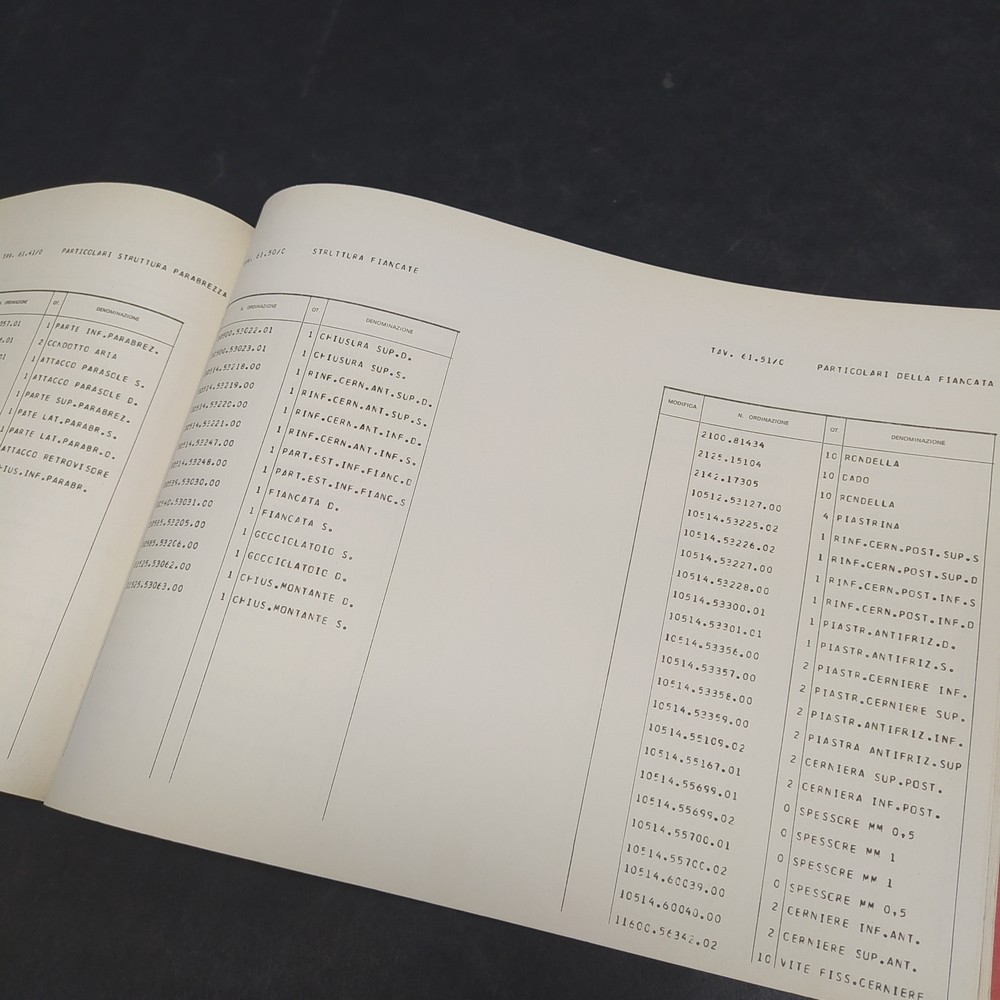 TAV. 61.41/D PARTICOLARI STRUTTURA PARABREZZA
N. ORDINAZIONE QT. DENOMINAZIONE
1 PARTE INF.PARABREZ.
2 CONDOTTO ARIA
1 ATTACCO PARASOLE S.
1 ATTACCO PARASOLE D.
1 PARTE SUP.PARABREZ.
1 PATE LAT.PARABR.S.
1 PARTE LAT.PARABR.D.
ATTACCO RETROVISORE
61.50/C STRUTTURA FIANCATE
N. ORDINAZIONE QT DENOMINAZIONE
53022.01 1 CHIUSURA SUP.D.
53023.01 1 CHIUSURA SUP.S.
53218.00 1 RINF.CERN.ANT.SUP.D.
53219.00 1 RINF.CERN.ANT.SUP.S.
53220.00 1 RINF.CERN.ANT.INF.D.
53221.00 1 RINF.CERN.ANT.INF.S.
53247.00 1 PART.EST.INF.FIANC.D
53248.00 1 PART.EST.INF.FIANC.S
53030.00 1 FIANCATA D.
53031.00 1 FIANCATA S.
53205.00 1 GOCCIOLATOIO S.
53206.00 1 GOCCIOLATOIO D.
53062.00 1 CHIUS.MONTANTE D.
53063.00 1 CHIUS.MONTANTE S.
TAV. 61.51/C PARTICOLARI DELLA FIANCATA
MODIFICA N. ORDINAZIONE QT DENOMINAZIONE
2100.81434 10 RONDELLA
2125.15104 10 DADO
2142.17305 10 RONDELLA
10512.53127.00 4 PIASTRINA
10514.53225.02 1 RINF.CERN.POST.SUP.S
10514.53226.02 1 RINF.CERN.POST.SUP.D
10514.53227.00 1 RINF.CERN.POST.INF.S
10514.53228.00 1 RINF.CERN.POST.INF.D
10514.53300.01 1 PIASTR.ANTIFRIZ.D.
10514.53301.01 1 PIASTR.ANTIFRIZ.S.
10514.53356.00 2 PIASTR.CERNIERE INF.
10514.53357.00 2 PIASTR.CERNIERE SUP.
10514.53358.00 2 PIASTR.ANTIFRIZ.INF.
10514.53359.00 2 PIASTRA ANTIFRIZ.SUP
10514.55109.02 2 CERNIERA SUP.POST.
10514.55167.01 2 CERNIERA INF.POST.
10514.55699.01 0 SPESSORE MM 0,5
10514.55699.02 0 SPESSORE MM 1
10514.55700.01 0 SPESSORE MM 1
10514.55700.02 0 SPESSORE MM 0,5
10514.60039.00 2 CERNIERE INF.ANT.
10514.60040.00 2 CERNIERE SUP.ANT.
11600.56342.02 10 VITE FISS.CERNIERE